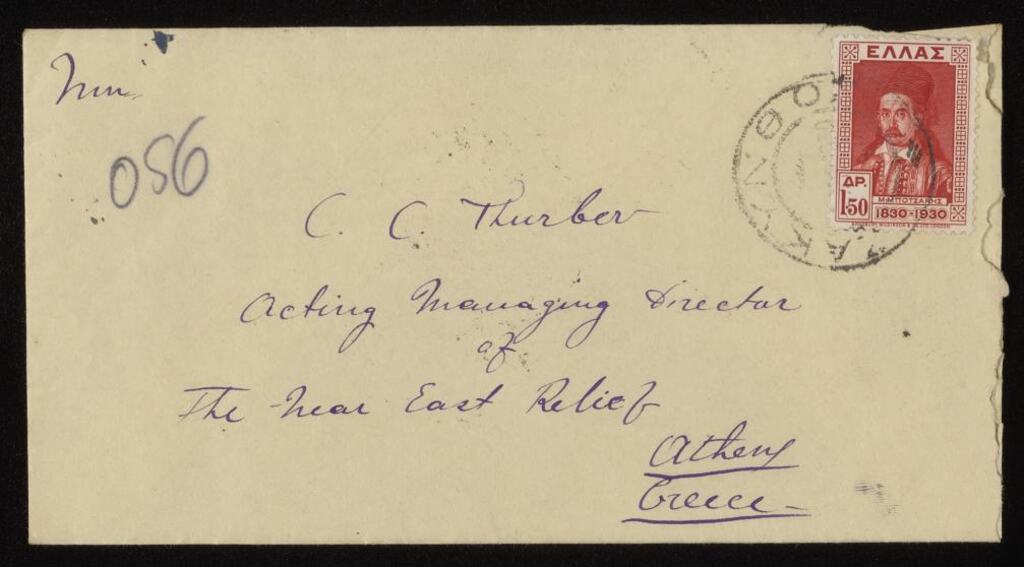 Mm.
056
ΕΛΛΑΣ
ΖΑΚΥΝΘΟΥ
Μ.ΜΠΟΤΣΑΡΗΣ
ΔΡ.
1.50
1830-1930
C. C. Thurber
Acting Managing Director
of
The Near East Relief
Athens
Greece